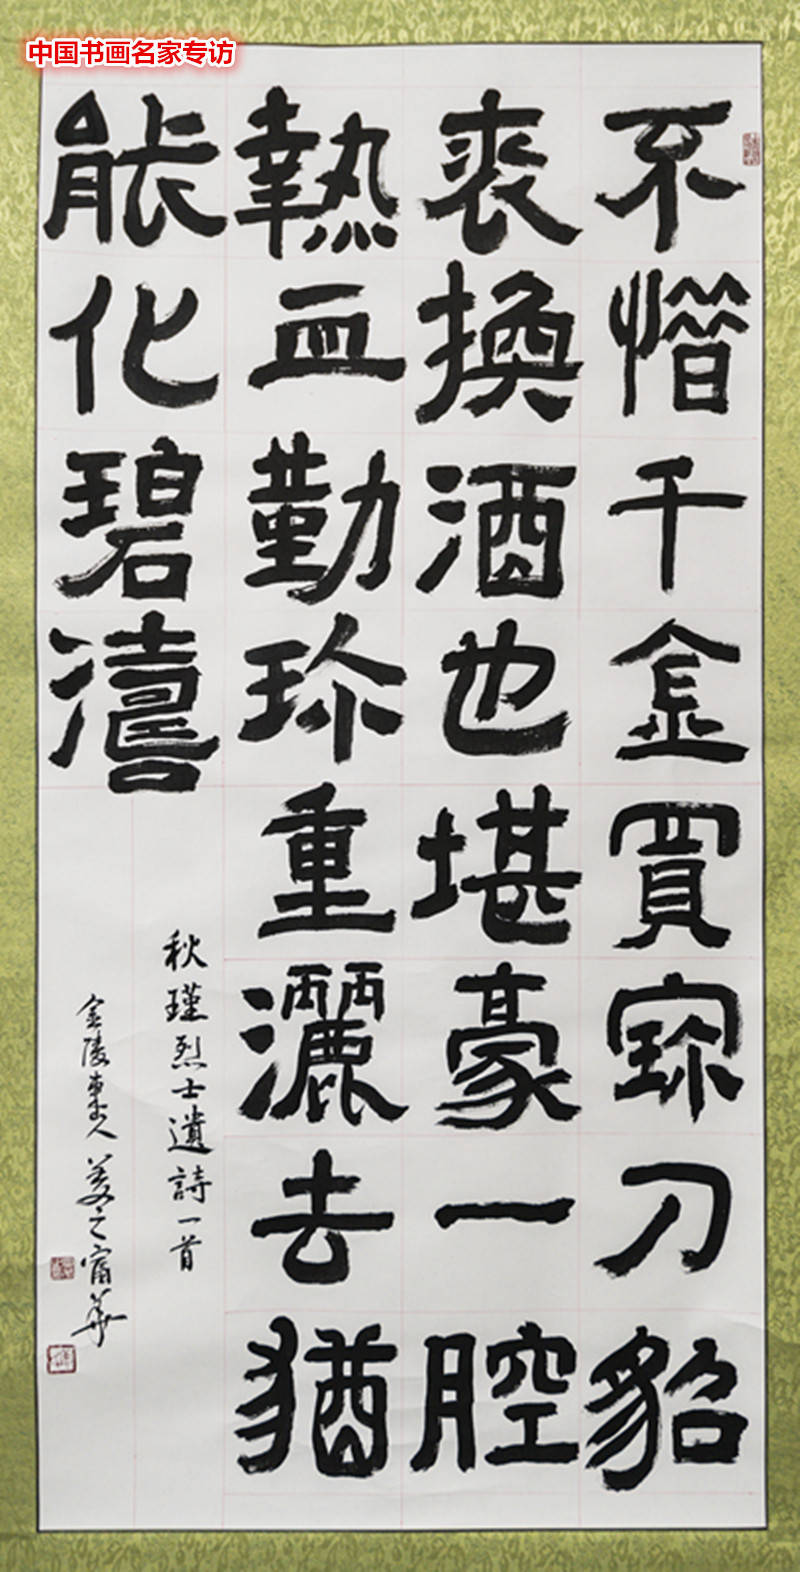 中国书画名家专访
不惜千金買寶刀貂
裘換酒也堪豪一腔
熱血勤珍重灑去猶
能化碧濤
秋瑾烈士遺詩一首
金陵